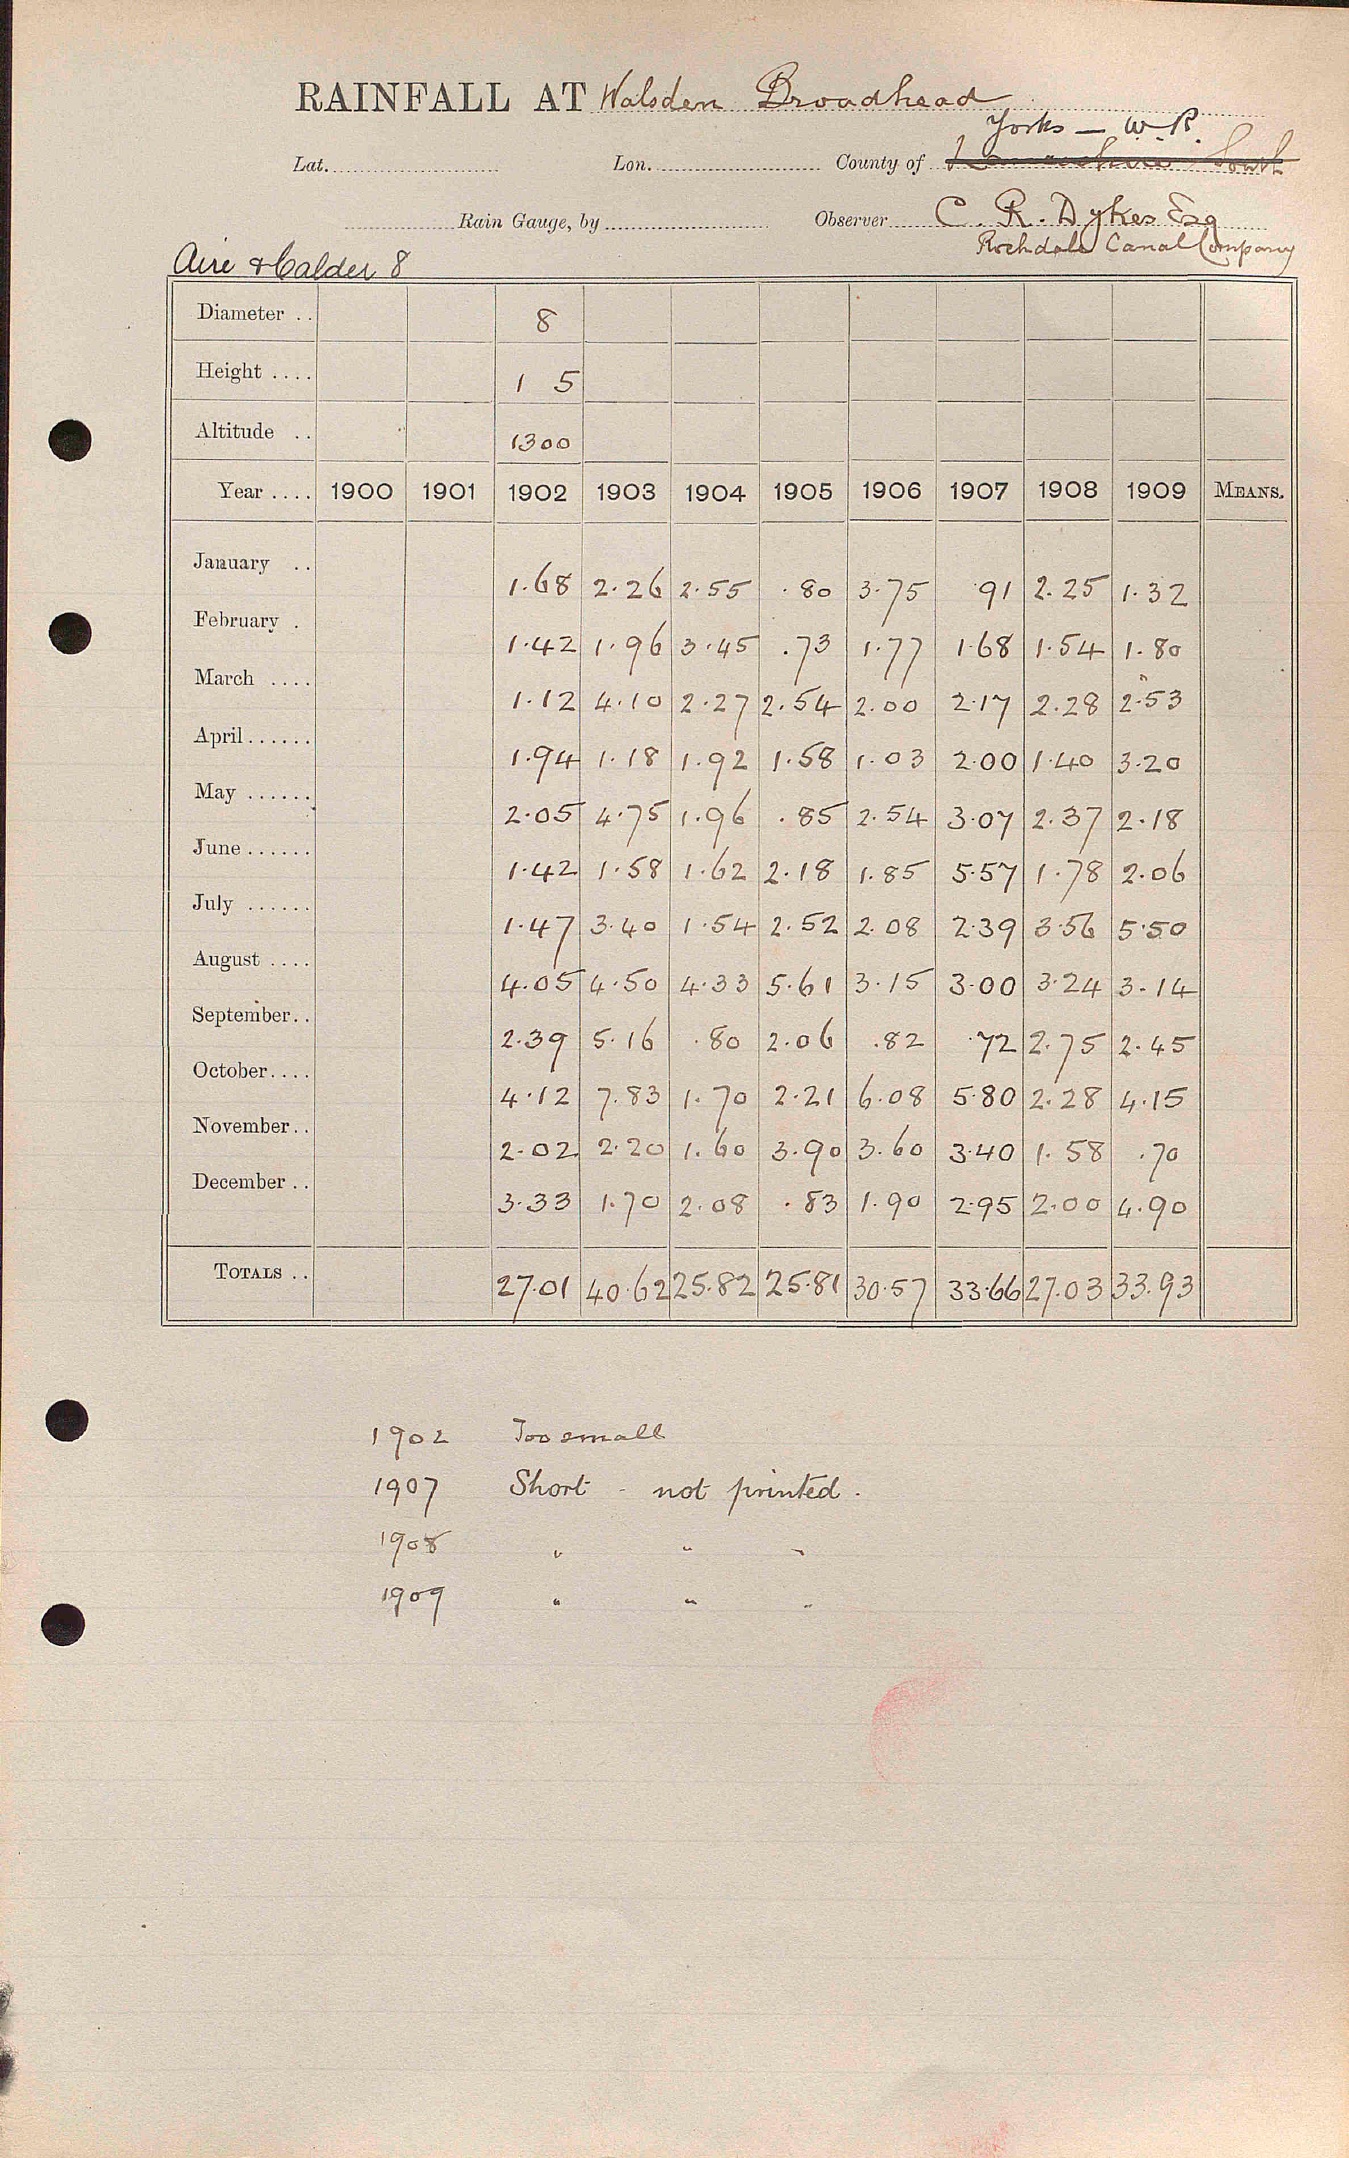 RAINFALL AT Walsden Broadhead
Yorks - W.R.
Lat. Lon. County of Lancashire South
Rain Gauge, by Observer C. R. Dykes Esq
Rochdale Canal Company
Aire & Calder 8
Diameter .. 8
Height .... 1 5
Altitude .. 1300
Year .... 1900 1901 1902 1903 1904 1905 1906 1907 1908 1909 MEANS.
January .. 1.68 2.26 2.55 .80 3.75 .91 2.25 1.32
February . 1.42 1.96 3.45 .73 1.77 1.68 1.54 1.80
March .... 1.12 4.10 2.27 2.54 2.00 2.17 2.28 2.53
April...... 1.94 1.18 1.92 1.58 1.03 2.00 1.40 3.20
May ...... 2.05 4.75 1.96 .85 2.54 3.07 2.37 2.18
June ...... 1.42 1.58 1.62 2.18 1.85 5.57 1.78 2.06
July ...... 1.47 3.40 1.54 2.52 2.08 2.39 3.56 5.50
August .... 4.05 4.50 4.33 5.61 3.15 3.00 3.24 3.14
September.. 2.39 5.16 .80 2.06 .82 .72 2.75 2.45
October.... 4.12 7.83 1.70 2.21 6.08 5.80 2.28 4.15
November.. 2.02 2.20 1.60 3.90 3.60 3.40 1.58 .70
December .. 3.33 1.70 2.08 .83 1.90 2.95 2.00 4.90
TOTALS .. 27.01 40.62 25.82 25.81 30.57 33.66 27.03 33.93
1902 Too small
1907 Short - not printed.
1908 " " "
1909 " " "